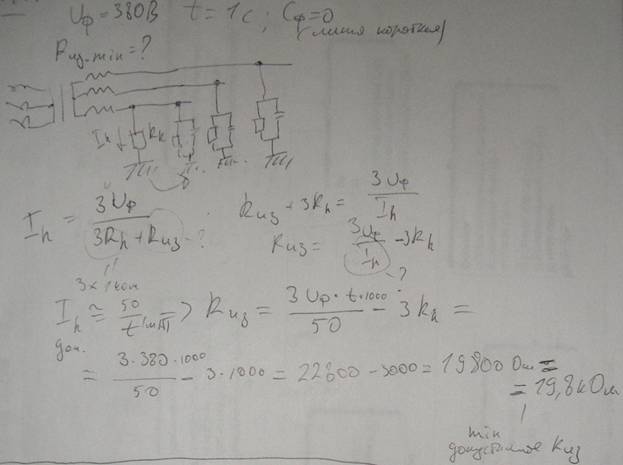 Uф = 380В t = 1с ; Cф = 0
(линия короткая)
Rиз.min = ?
Ih ↓ Rh
Ih = 3Uф / (3Rh + Rиз) - ?
Rиз + 3Rh = 3Uф / Ih
Rиз = 3Uф / Ih - 3Rh
?
3 × 1кОм
Ih доп. ≃ 50 / t (мА) => Rиз = 3Uф · t · 1000 / 50 - 3Rh =
= 3 · 380 · 1000 / 50 - 3 · 1000 = 22800 - 3000 = 19800 Ом =
= 19,8 кОм
min
допустимое Rиз